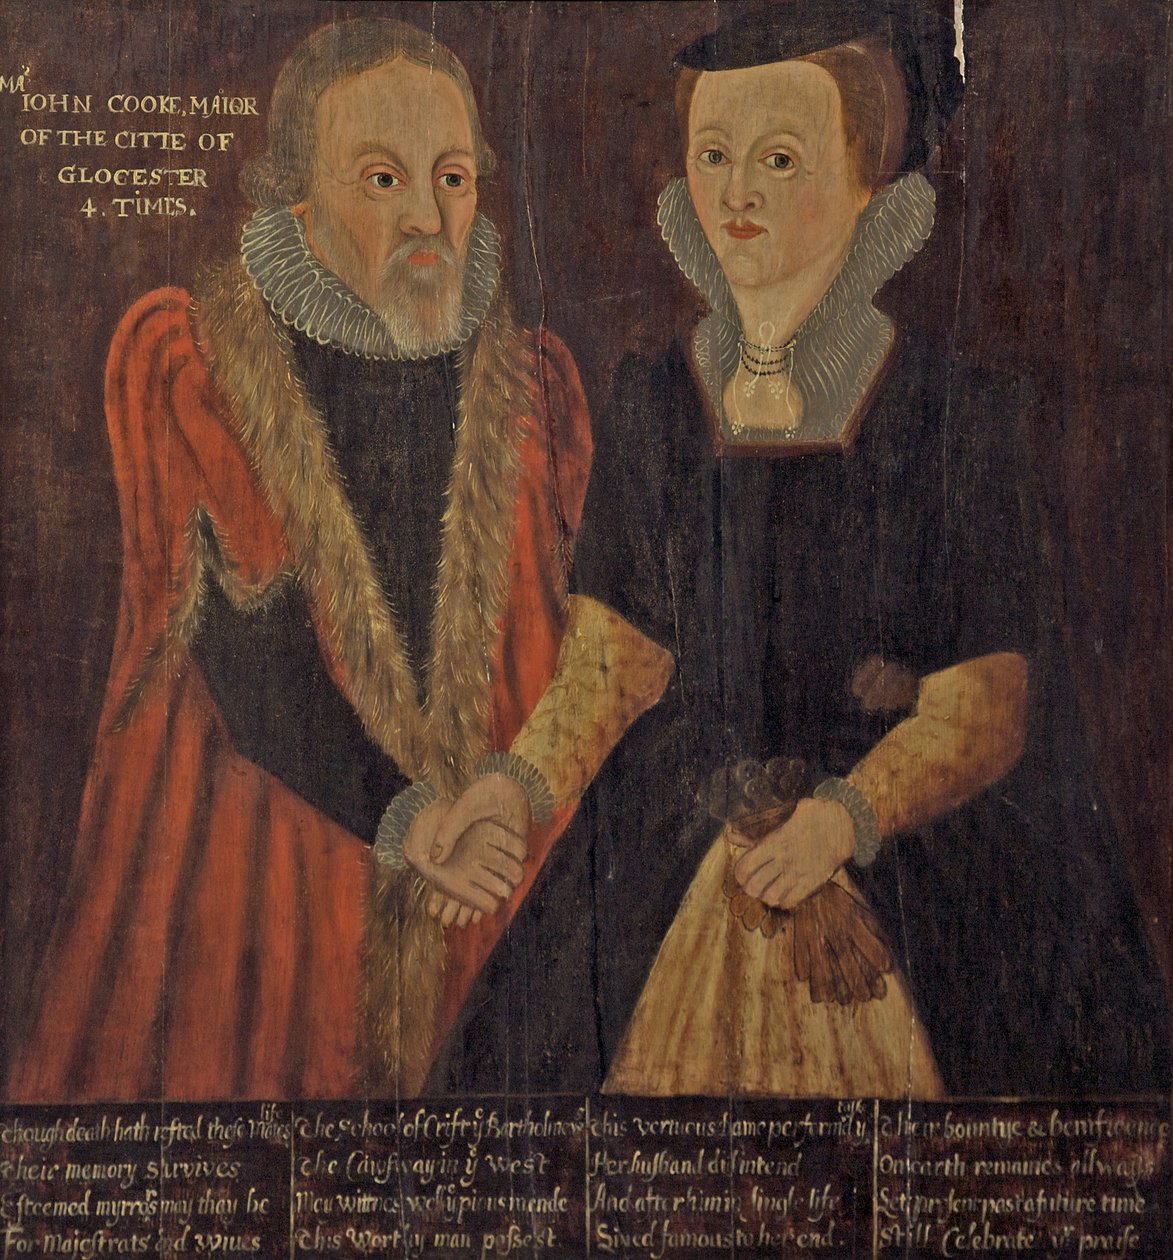 MAʳ
IOHN COOKE, MAIOR
OF THE CITTE OF
GLOCESTER
4. TIMES.
Though death hath refted these Mates life
Their memory survives
Esteemed myrroʳs may thay be
For Majestrats and Wives
The School of Crist yᵉ Bartholmews
The Cawsway in yᵉ West
May witnes wellᶜ pious mende
This Worthy man possest.
This vertuus dame performd yᵉ taske
Her husband did intend
And after him in single life
Lived famous to her end.
Their bountye & benificence
On earth remaines allways
Let present past & future time
Still Celebrate yʳ praise